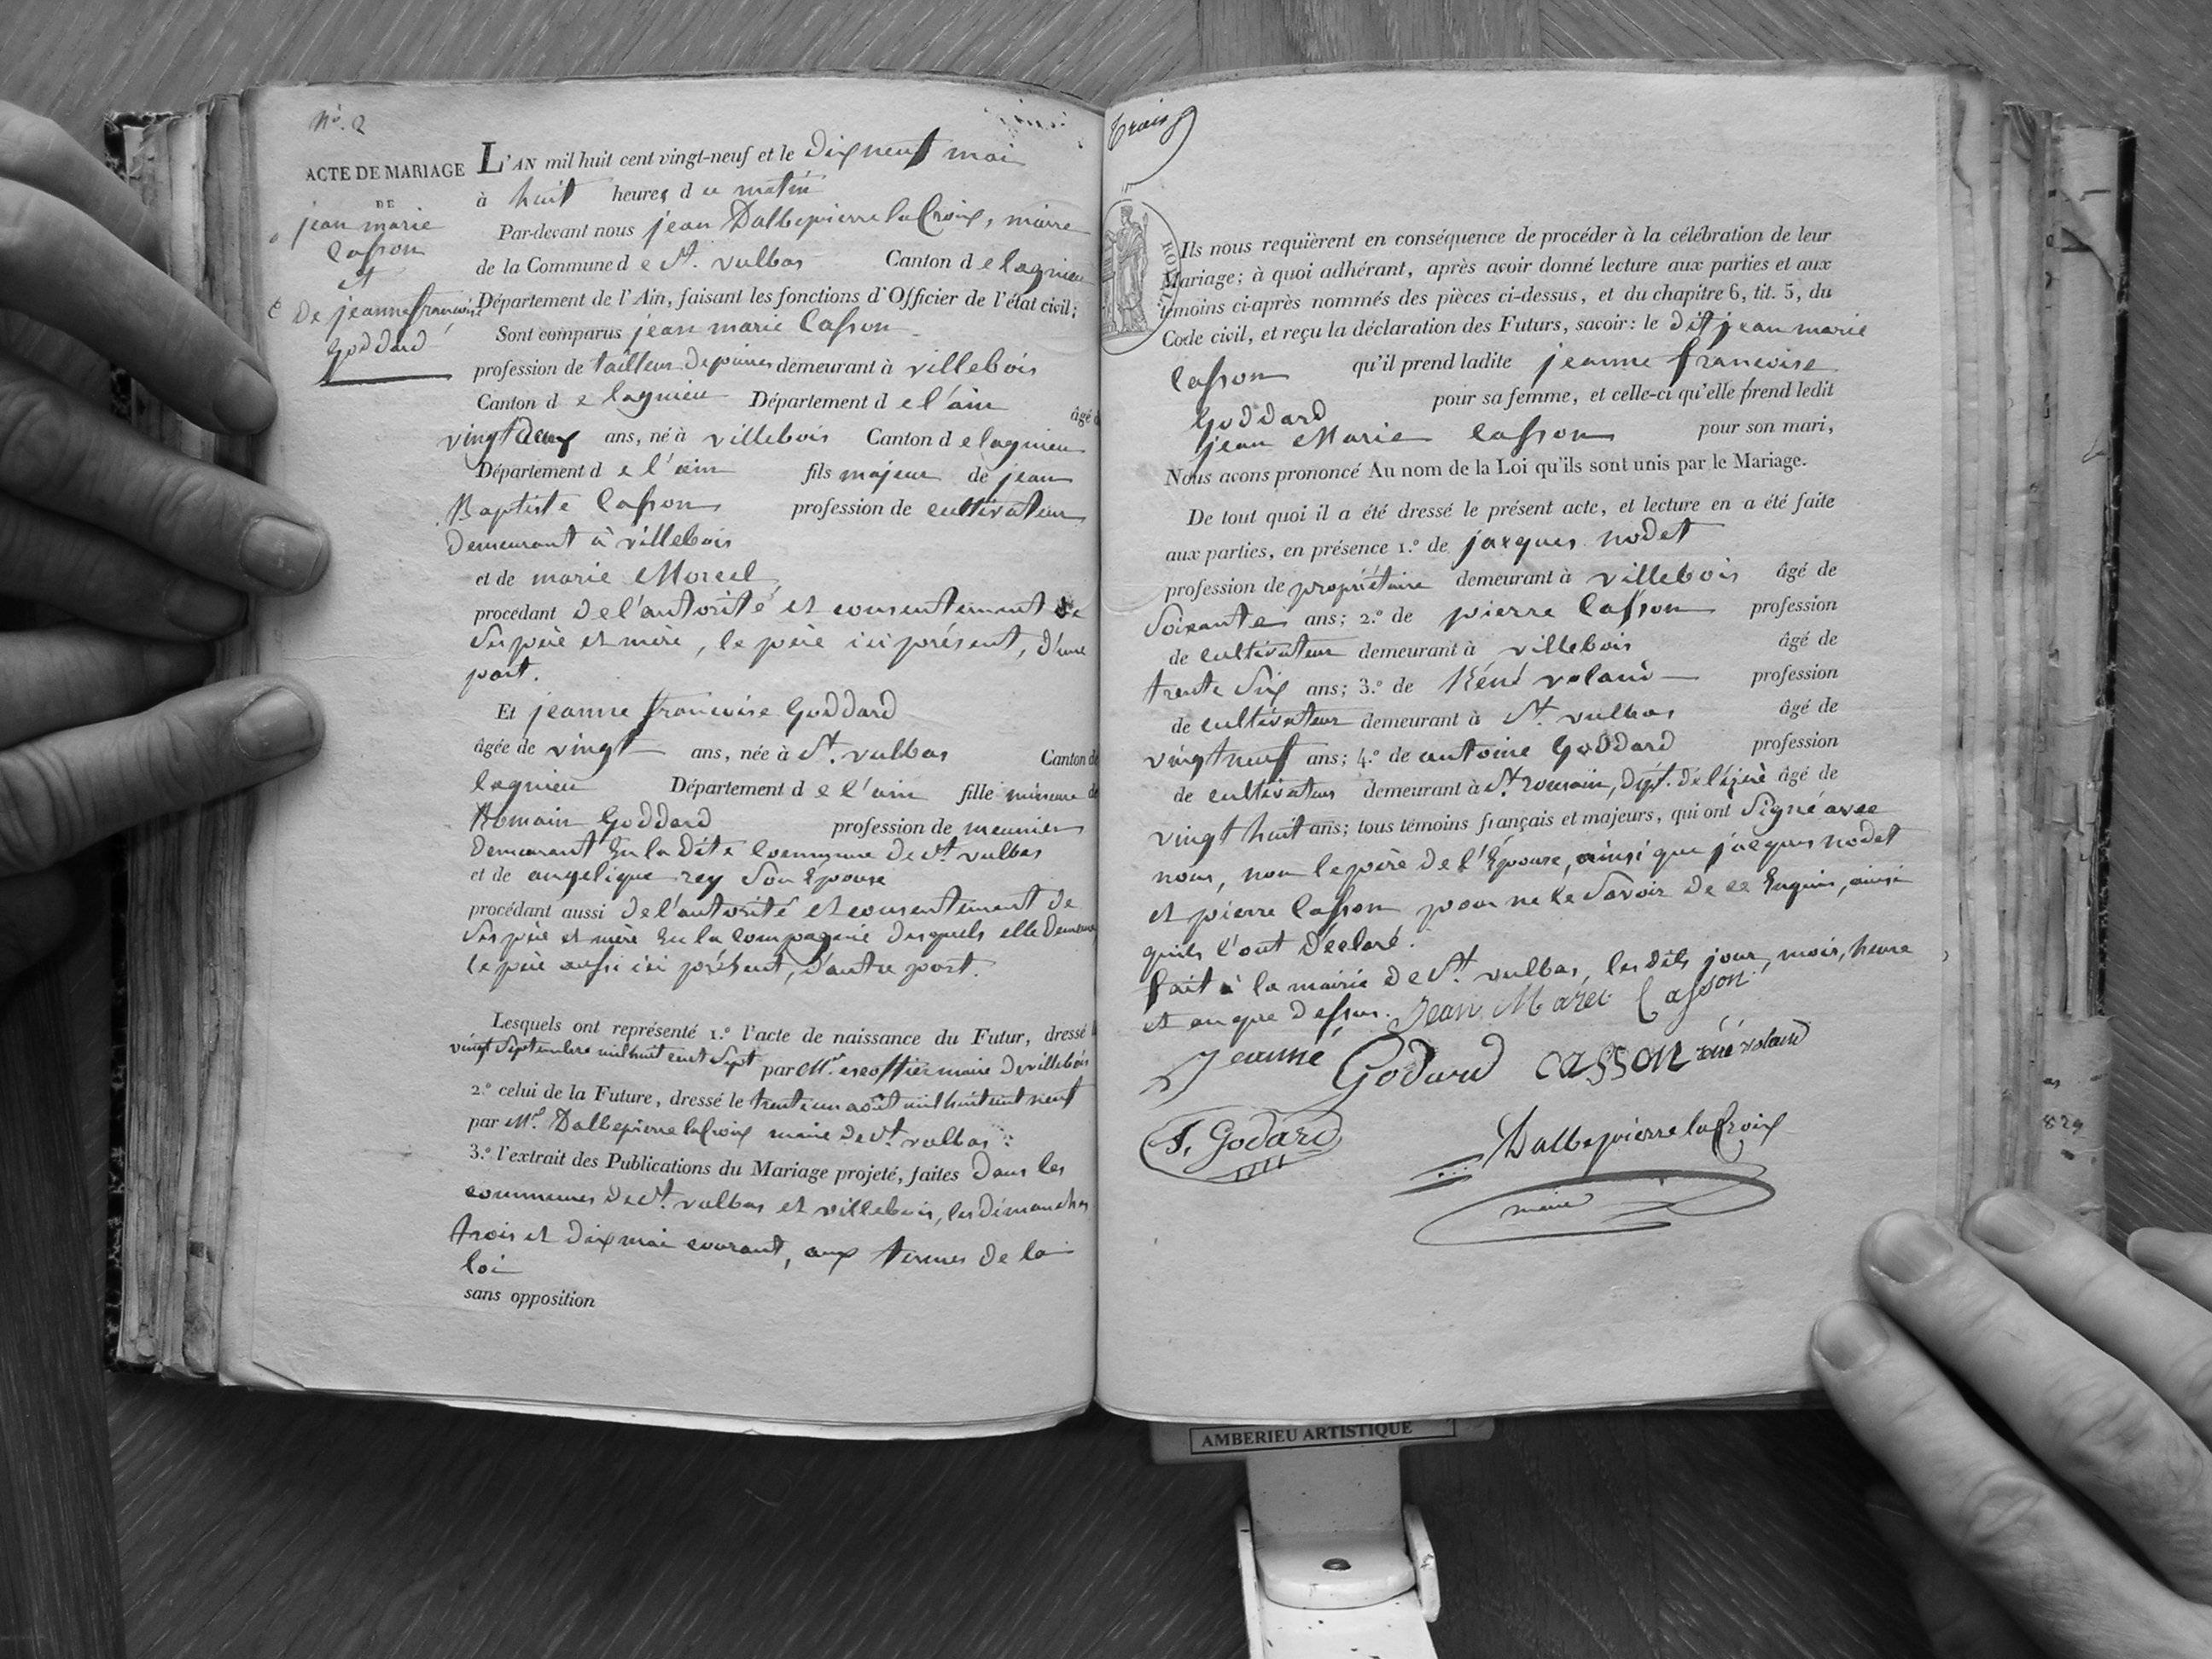 N.o 2
ACTE DE MARIAGE
DE
jean marie
Casson
et
De jeanne françoise
Goddard
L'AN mil huit cent vingt-neuf et le dix neuf mai
à huit heures du matin
Par-devant nous jean Dalbepierre laCroix, maire
de la Commune de St. vulbas Canton de lagnieu
Département de l'Ain, faisant les fonctions d'Officier de l'état civil;
Sont comparus jean marie Casson
profession de tailleur de pierres demeurant à villebois
Canton de lagnieu Département de l'ain âgé de
vingt deux ans, né à villebois Canton de lagnieu
Département de l'ain fils majeur de jean
Baptiste Casson profession de cultivateur
demeurant à villebois
et de marie Morcel
procédant de l'autorité et consentement de
ses père et mère, le père ici présent, d'une
part.
Et jeanne françoise Goddard
âgée de vingt ans, née à St. vulbas Canton de
lagnieu Département de l'ain fille mineure de
Romain Goddard profession de meunier
demeurant en la dite commune de St. vulbas
et de angelique rey son épouse
procédant aussi de l'autorité et consentement de
ses père et mère en la compagnie desquels elle demeure
le père aussi ici présent, d'autre part.
Lesquels ont représenté 1.o l'acte de naissance du Futur, dressé le
vingt septembre mil huit cent sept par Mr. escoffier maire de villebois
2.o celui de la Future, dressé le trente un août mil huit cent neuf
par Mr. Dalbepierre laCroix maire de St. vulbas:
3.o l'extrait des Publications du Mariage projeté, faites dans les
communes de St. vulbas et villebois, les dimanches
trois et dix mai courant, aux termes de la
loi
sans opposition
trois
ROYAL
Ils nous requièrent en conséquence de procéder à la célébration de leur
Mariage; à quoi adhérant, après avoir donné lecture aux parties et aux
témoins ci-après nommés des pièces ci-dessus, et du chapitre 6, tit. 5, du
Code civil, et reçu la déclaration des Futurs, savoir: le dit jean marie
Casson qu'il prend ladite jeanne francoise
Goddard pour sa femme, et celle-ci qu'elle prend ledit
jean Marie Casson pour son mari,
Nous avons prononcé Au nom de la Loi qu'ils sont unis par le Mariage.
De tout quoi il a été dressé le présent acte, et lecture en a été faite
aux parties, en présence 1.o de jacques nodet
profession de propriétaire demeurant à villebois âgé de
soixante ans; 2.o de pierre Casson profession
de cultivateur demeurant à villebois âgé de
trente six ans; 3.o de Réné voland profession
de cultivateur demeurant à St. vulbas âgé de
vingt neuf ans; 4.o de antoine Goddard profession
de cultivateur demeurant à St. romain, dépt. de l'izère âgé de
vingt huit ans; tous témoins français et majeurs, qui ont signé avec
nous, non le père de l'épouse, ainsi que jacques nodet
et pierre Casson pour ne le savoir de ce enquis, ainsi
quils l'ont déclaré.
fait à la mairie de St. vulbas, les dits jour, mois, heure
et an que dessus. Jean Marei Casson
Jeanne Godard CASSON réné voland
F. Godard
Dalbepierre laCroix
maire
829
AMBERIEU ARTISTIQUE